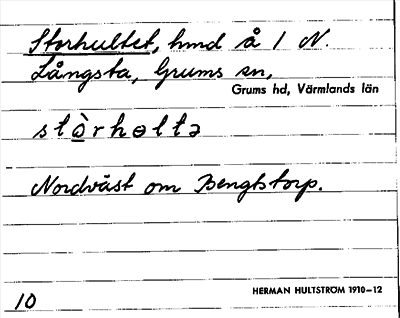 Storhultet, hmd å 1 N.
Långsta, Grums sn,
Grums hd, Värmlands län
stòrhɵltə
Nordväst om Bengtstorp.
HERMAN HULTSTRÖM 1910–12
10